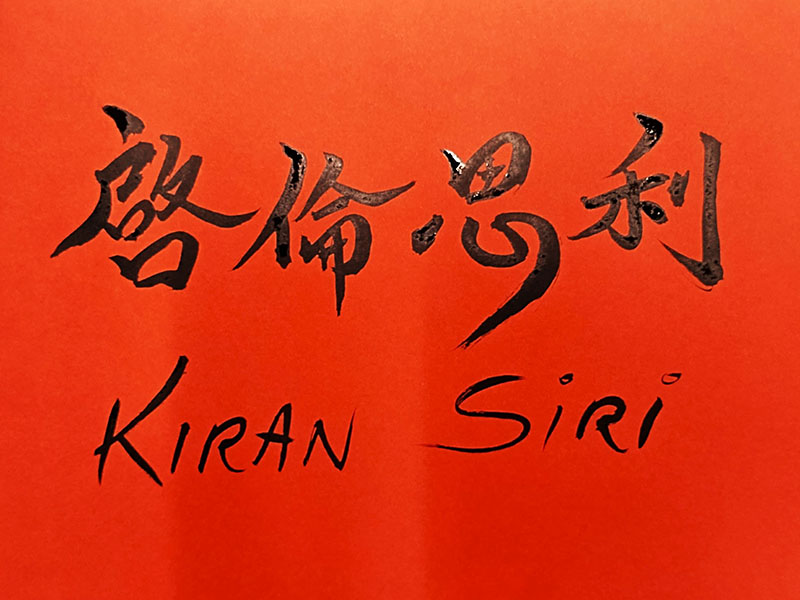 啓倫思利
KIRAN SiRi